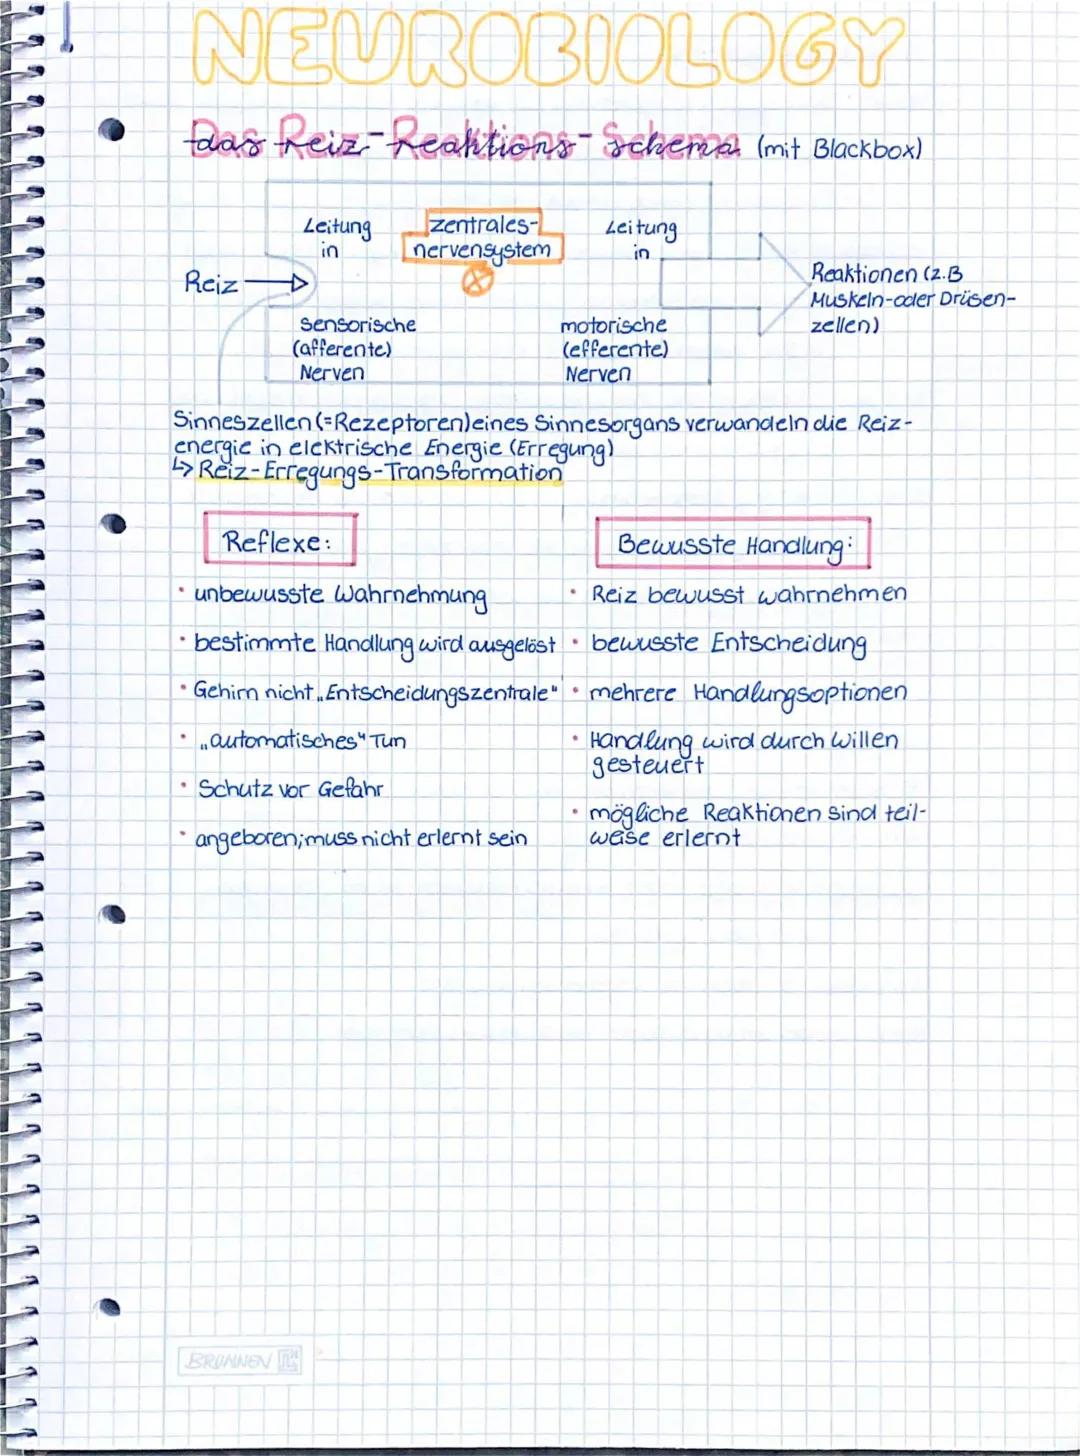 NEUROBIOLOGY
das Reiz-Reaktions-Schema (mit Blackbox)
Leitung in
zentrales-
nervensystem
Leitung in
Reiz
Reaktionen (z.B
Muskeln-oder Drüsen-
zellen)
sensorische
(afferente)
Nerven
motorische
(efferente)
Nerven
Sinneszellen (=Rezeptoren) eines Sinnesorgans verwandeln die Reiz-
energie in elektrische Energie (Erregung)
↳ Reiz-Erregungs-Transformation
Reflexe:
• unbewusste Wahrnehmung
• bestimmte Handlung wird ausgelöst
• Gehirn nicht „Entscheidungszentrale"
• „automatisches" Tun
• Schutz vor Gefahr
• angeboren; muss nicht erlernt sein
Bewusste Handlung:
• Reiz bewusst wahrnehmen
• bewusste Entscheidung
• mehrere Handlungsoptionen
• Handlung wird durch Willen
gesteuert
• mögliche Reaktionen sind teil-
weise erlernt
BRUNNEN